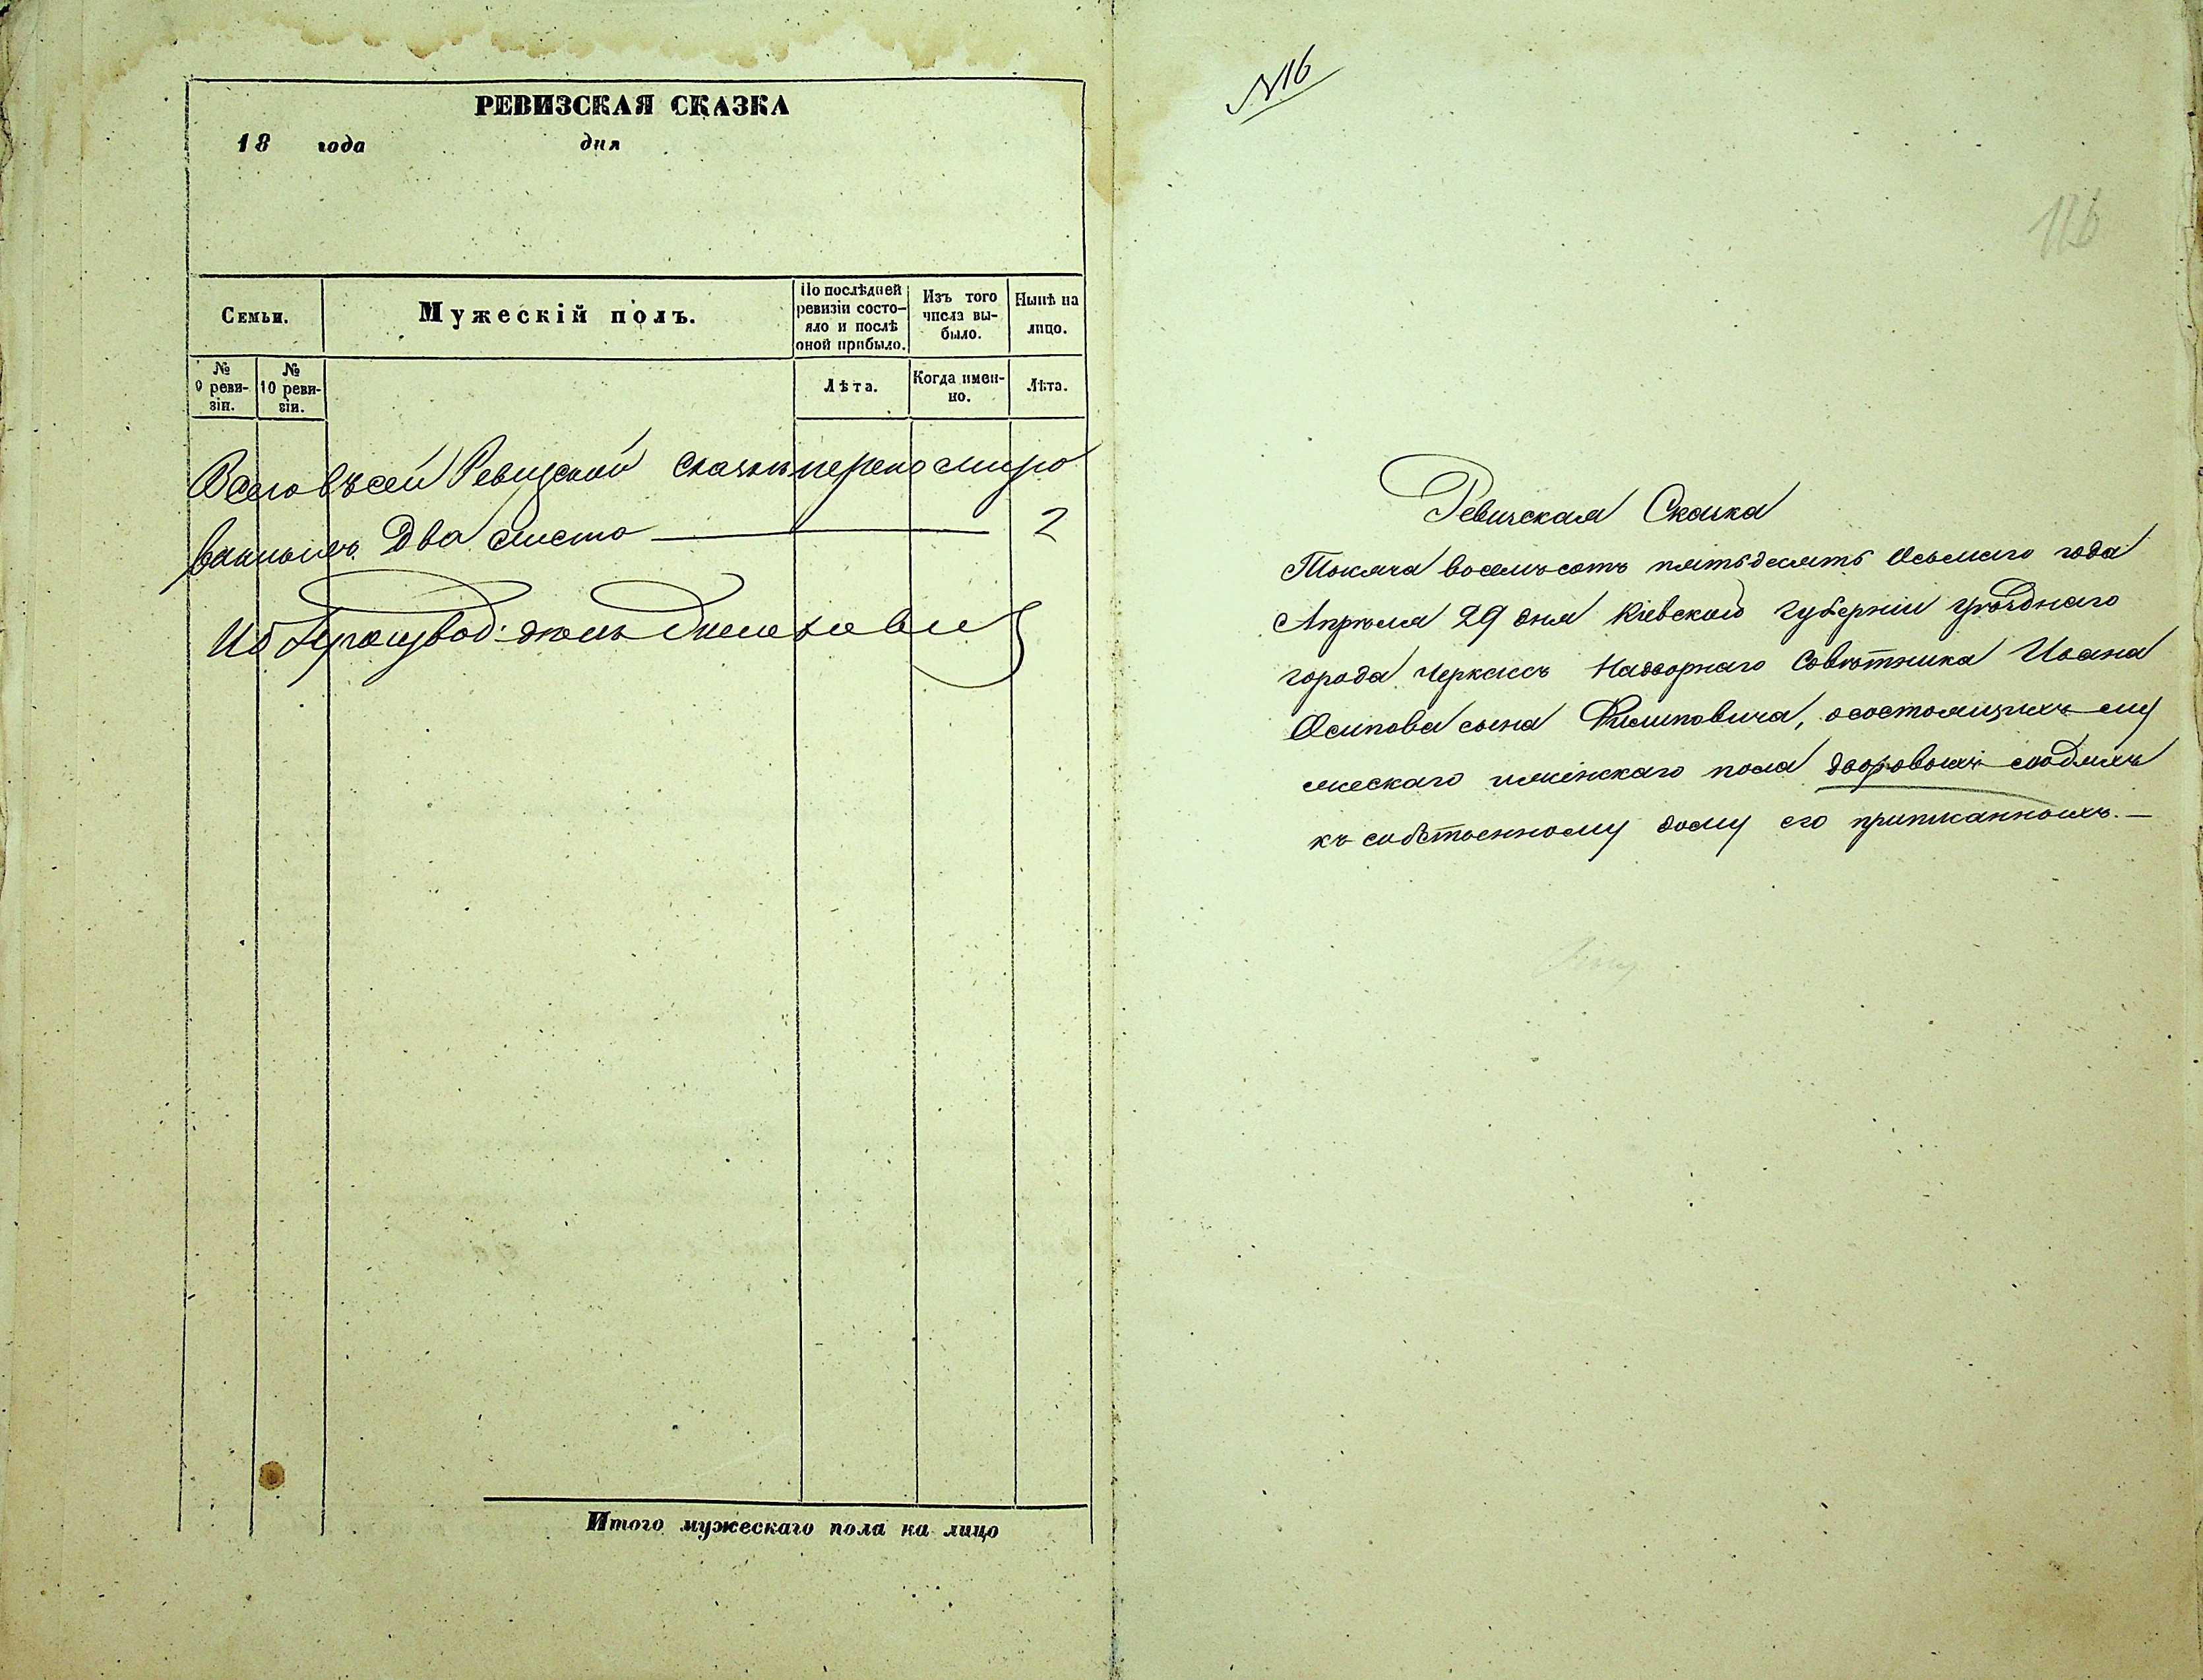 РЕВИЗСКАЯ СКАЗКА
18 года дня
Семьи.
Мужескій полъ.
По послѣдней ревизіи состо-
яло и послѣ оной прибыло.
Изъ того числа вы-
было.
Нынѣ на лицо.
№ 9 реви-
зіи.
№ 10 реви-
зіи.
Лѣта.
Когда имен-
но.
Лѣта.
Всего въ сей Ревизской сказки перенумеро
ванныхъ два листа — 2
Итого мужескаго пола на лицо
№16
116
Ревизская Сказка
Тысяча восемьсотъ пятьдесятъ Осьмаго года
Апрѣля 29 дня Кіевской губерніи уѣзднаго
города Черкассъ Надворнаго Совѣтника Ивана
Осипова сына Филиповича, о состоящихъ му
жескаго и женскаго пола дворовыхъ людяхъ
къ собственному дому его приписанныхъ. —